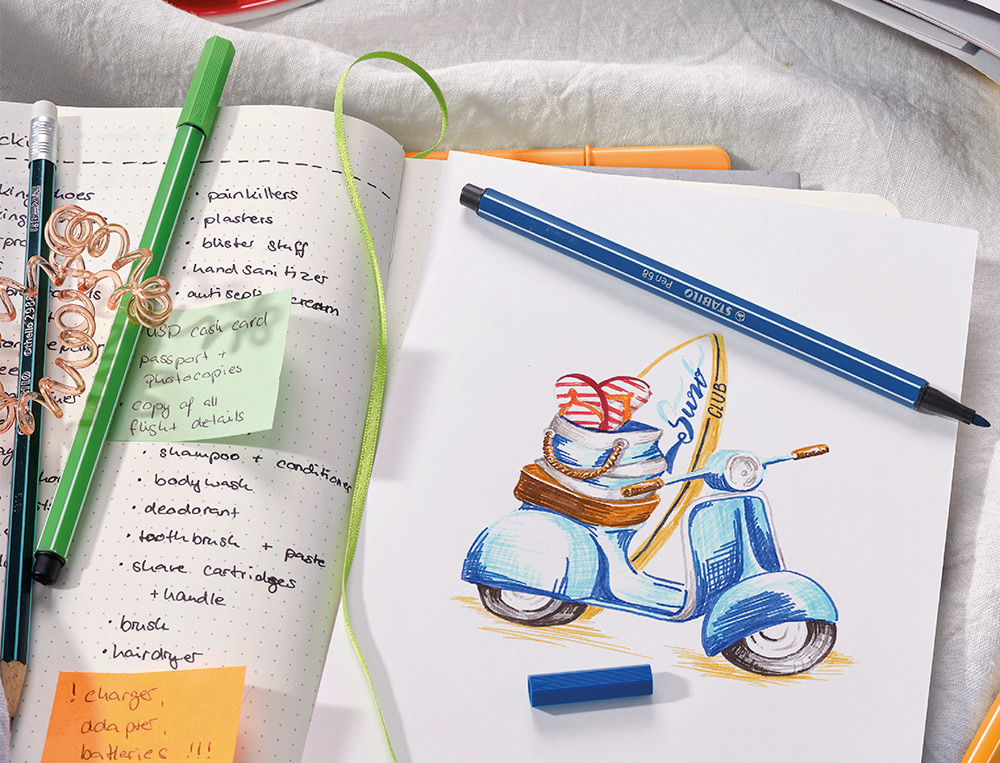 painkillers
plasters
blister stuff
hand sanitizer
antiseptic cream
USD cash card
passport +
photocopies
• copy of all
flight details
• shampoo + conditioner
• body wash
• deodorant
• toothbrush + paste
• shave cartridges
+ handle
• brush
• hairdryer
! charger,
adapter,
batteries !!!
STABILO Pen 68
Surf
CLUB
Othello